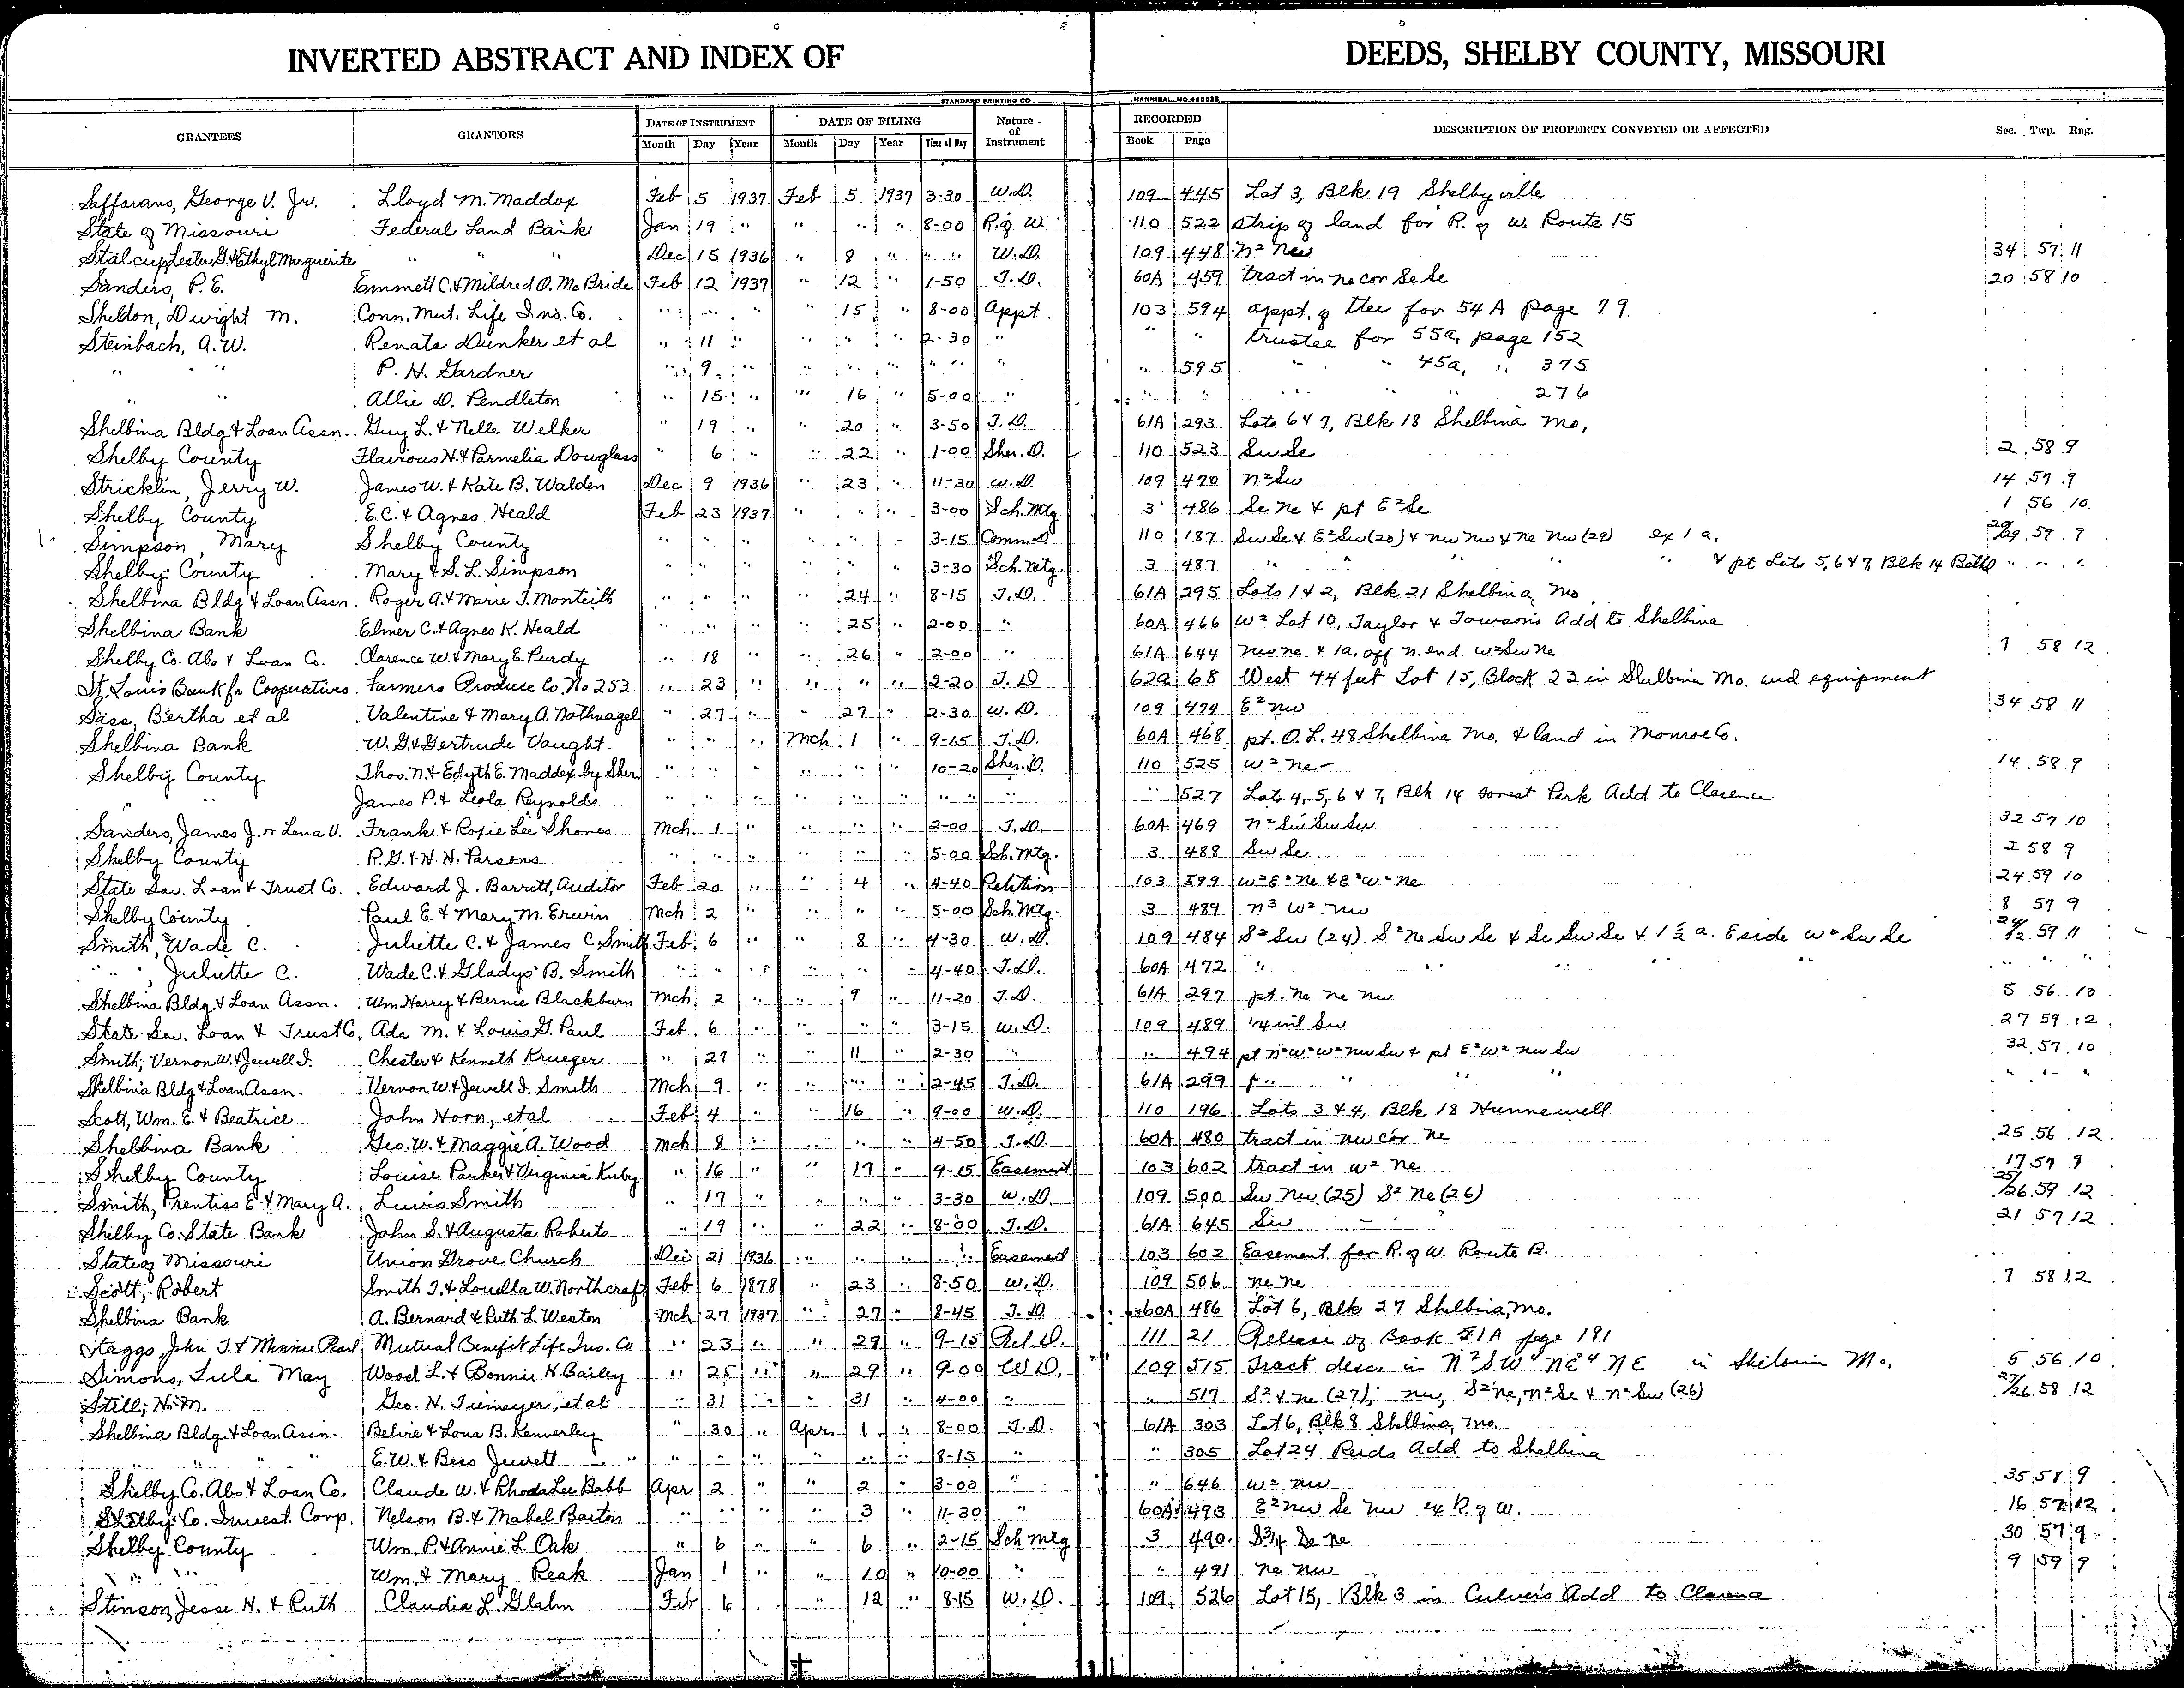 INVERTED ABSTRACT AND INDEX OF DEEDS, SHELBY COUNTY, MISSOURI
STANDARD PRINTING CO. HANNIBAL NO.
GRANTEES GRANTORS DATE OF INSTRUMENT DATE OF FILING Nature of Instrument RECORDED DESCRIPTION OF PROPERTY CONVEYED OR AFFECTED Sec. Twp. Rng.
Month Day Year Month Day Year Time of Day Book Page
Saffarans, George V. Jr. Lloyd M. Maddox Feb 5 1937 Feb 5 1937 3-30 W.D. 109 445 Lot 3, Blk 19 Shelbyville
State of Missouri Federal Land Bank Jan 19 " " " " 8-00 R. of W. 110 522 strip of land for R. of W. Route 15
Stalcup, Lester G. & Ethyl Marguerite " " " Dec 15 1936 " 8 " " " W.D. 109 448 N² Nw 34 57 11
Sanders, P. E. Emmett C. & Mildred O. McBride Feb 12 1937 " 12 " 1-50 T.D. 60A 459 tract in ne cor Se Se 20 58 10
Sheldon, Dwight M. Conn. Mut. Life Ins. Co. " " " " 15 " 8-00 Appt. 103 594 appt. of ttee for 54 A page 79.
Steinbach, A. W. Renata Dunker et al " 11 " " " " 2-30 " " " trustee for 55a, page 152
" " P. H. Gardner " 9 " " " " " " " " 595 " " 45a, " 375
" " Allie D. Pendleton " 15 " " 16 " 5-00 " " " " " " 276
Shelbina Bldg. & Loan Assn. Guy L. & Nelle Welker " 19 " " 20 " 3-50 T.D. 61A 293 Lots 6 & 7, Blk 18 Shelbina Mo.
Shelby County Flavious H. & Parmelia Douglass " 6 " 22 " 1-00 Sher. D. 110 523 Sw Se 2 58 9
Stricklin, Jerry W. James W. & Kate B. Walden Dec 9 1936 " 23 " 11-30 W.D. 109 470 N² Sw 14 57 9
Shelby County E. C. & Agnes Heald Feb 23 1937 " " " 3-00 Sch. Mtg 3 486 Se Ne & pt E² Se 1 56 10
Simpson, Mary Shelby County " " " " " " 3-15 Comm. D 110 187 Sw Se & E² Sw (20) & Nw Nw & Ne Nw (29) ex 1 a. 20/29 57 9
Shelby County Mary & S. L. Simpson " " " " " " 3-30 Sch. Mtg. 3 487 " " " " & pt Lots 5, 6 & 7, Blk 14 Bethel " " "
Shelbina Bldg & Loan Assn Roger A. & Marie T. Monteith " " " " 24 " 8-15 T.D. 61A 295 Lots 1 & 2, Blk 21 Shelbina, Mo
Shelbina Bank Elmer C. & Agnes K. Heald " " " " 25 " 2-00 " 60A 466 W² Lot 10, Taylor & Towson's Add to Shelbina
Shelby Co. Abs & Loan Co. Clarence W. & Mary E. Purdy " 18 " " 26 " 2-00 " 61A 644 Nw Ne & 1a. off N. end W² Sw Ne 7 58 12
St. Louis Bank for Cooperatives Farmers Produce Co. No 253 " 23 " " " " 2-20 T.D 62a 68 West 44 feet Lot 15, Block 23 in Shelbina Mo. and equipment
Sass, Bertha et al Valentine & Mary A. Nothnagel " 27 " 27 " 2-30 W.D. 109 474 E² Nw 34 58 11
Shelbina Bank W. G. & Gertrude Vaught " " " Mch 1 " 9-15 T.D. 60A 468 pt. O. L. 48 Shelbina Mo. & land in Monroe Co.
Shelby County Thos. N. & Edyth E. Maddox by Sher. " " " " " " 10-20 Sher. D. 110 525 W² Ne 14 58 9
" James P. & Leola Reynolds " " " " " " " " " " 527 Lots 4, 5, 6 & 7, Blk 14 Forest Park Add to Clarence
Sanders, James J. or Lena V. Frank & Roxie Lee Shores Mch 1 " " " " 2-00 T.D. 60A 469 N² Sw Sw Sw 32 57 10
Shelby County R. G. & H. H. Parsons " " " " " " 5-00 Sch. Mtg. 3 488 Sw Se 2 58 9
State Sav. Loan & Trust Co. Edward J. Barrett, Auditor Feb 20 " " 4 " 4-40 Petition 103 599 W² E² Ne & E² W² Ne 24 59 10
Shelby County Paul E. & Mary M. Erwin Mch 2 " " " " 5-00 Sch. Mtg. 3 489 N³ W² Nw 8 57 9
Smith, Wade C. Juliette C. & James C. Smith Feb 6 " " 8 " 4-30 W.D. 109 484 S² Sw (24) S² Ne Sw Se & Se Sw Se & 1½ a. E side W² Sw Se 59 11
" Juliette C. Wade C. & Gladys B. Smith " " " " " " 4-40 T.D. 60A 472 " " " " " " "
Shelbina Bldg. & Loan Assn. Wm. Harry & Bernie Blackburn Mch 2 " " 9 " 11-20 T.D. 61A 297 pt. Ne Ne Nw 5 56 10
State Sav. Loan & Trust Co, Ada M. & Louis G. Paul Feb 6 " " " " 3-15 W.D. 109 489 Sw 27 59 12
Smith, Vernon W. & Jewell I. Chester & Kenneth Krueger " 27 " " 11 " 2-30 " " 494 pt N² W² W² Nw Sw & pt E² W² Nw Sw 32 57 10
Shelbina Bldg & Loan Assn. Vernon W. & Jewell I. Smith Mch 9 " " " " 2-45 T.D. 61A 299 " " " " " " "
Scott, Wm. E. & Beatrice John Horn, et al Feb 4 " " 16 " 9-00 W.D. 110 196 Lots 3 & 4, Blk 18 Hunnewell
Shelbina Bank Geo. W. & Maggie A. Wood Mch 8 " " " " 4-50 T.D. 60A 480 tract in Nw cor Ne 25 56 12
Shelby County Louise Parker & Virginia Kirby " 16 " " 17 " 9-15 Easement 103 602 tract in W² Ne 17 57 9
Smith, Prentiss E. & Mary A. Lewis Smith " 17 " " " " 3-30 W.D. 109 500 Sw Nw (25) S² Ne (26) 25/26 59 12
Shelby Co. State Bank John S. & Augusta Roberts " 19 " " 22 " 8-00 T.D. 61A 645 Sw 21 57 12
State of Missouri Union Grove Church Dec 21 1936 " " " " Easement 103 602 Easement for R. of W. Route B.
Scott, Robert Smith T. & Louella W. Northcraft Feb 6 1878 " 23 " 8-50 W.D. 109 506 Ne Ne 7 58 12
Shelbina Bank A. Bernard & Ruth L. Weston Mch 27 1937 " 27 " 8-45 T.D. 60A 486 Lot 6, Blk 27 Shelbina, Mo.
Staggs, John T. & Minnie Pearl Mutual Benefit Life Ins. Co " 23 " " 29 " 9-15 Rel. D. 111 21 Release of Book 51A page 181
Simons, Lula May Wood L. & Bonnie H. Bailey " 25 " " 29 " 9-00 W.D. 109 515 Tract desc. in N² SW⁴ NE⁴ NE in Shelbina Mo. 5 56 10
Still, H. M. Geo. H. Tiemeyer, et al " 31 " " 31 " 4-00 " " 517 S² & Ne (27); Nw, S² Ne, N² Se & N² Sw (26) 27/26 58 12
Shelbina Bldg. & Loan Assn. Belvie & Lona B. Kennerley " 30 " Apr 1 " 8-00 T.D. 61A 303 Lot 6, Blk 8 Shelbina, Mo.
" " " E. W. & Bess Jewett " " " " " " 8-15 " " 305 Lot 24 Reids Add to Shelbina
Shelby Co. Abs & Loan Co. Claude W. & Rhoda Lee Babb Apr 2 " " 2 " 3-00 " " 646 W² Nw 35 58 9
Shelby Co. Invest. Corp. Nelson B. & Mabel Barton " " " " 3 " 11-30 " 60A 493 E² Nw Se Nw ex R. of W. 16 57 12
Shelby County Wm. P. & Annie L. Oak " 6 " " 6 " 2-15 Sch Mtg 3 490 S¾ Se Ne 30 57 9
" " Wm. & Mary Peak Jan 1 " " 10 " 10-00 " " 491 Ne Nw 9 59 9
Stinson, Jesse H. & Ruth Claudia L. Glahn Feb 6 " 12 " 8-15 W.D. 109 526 Lot 15, Blk 3 in Culver's Add to Clarence